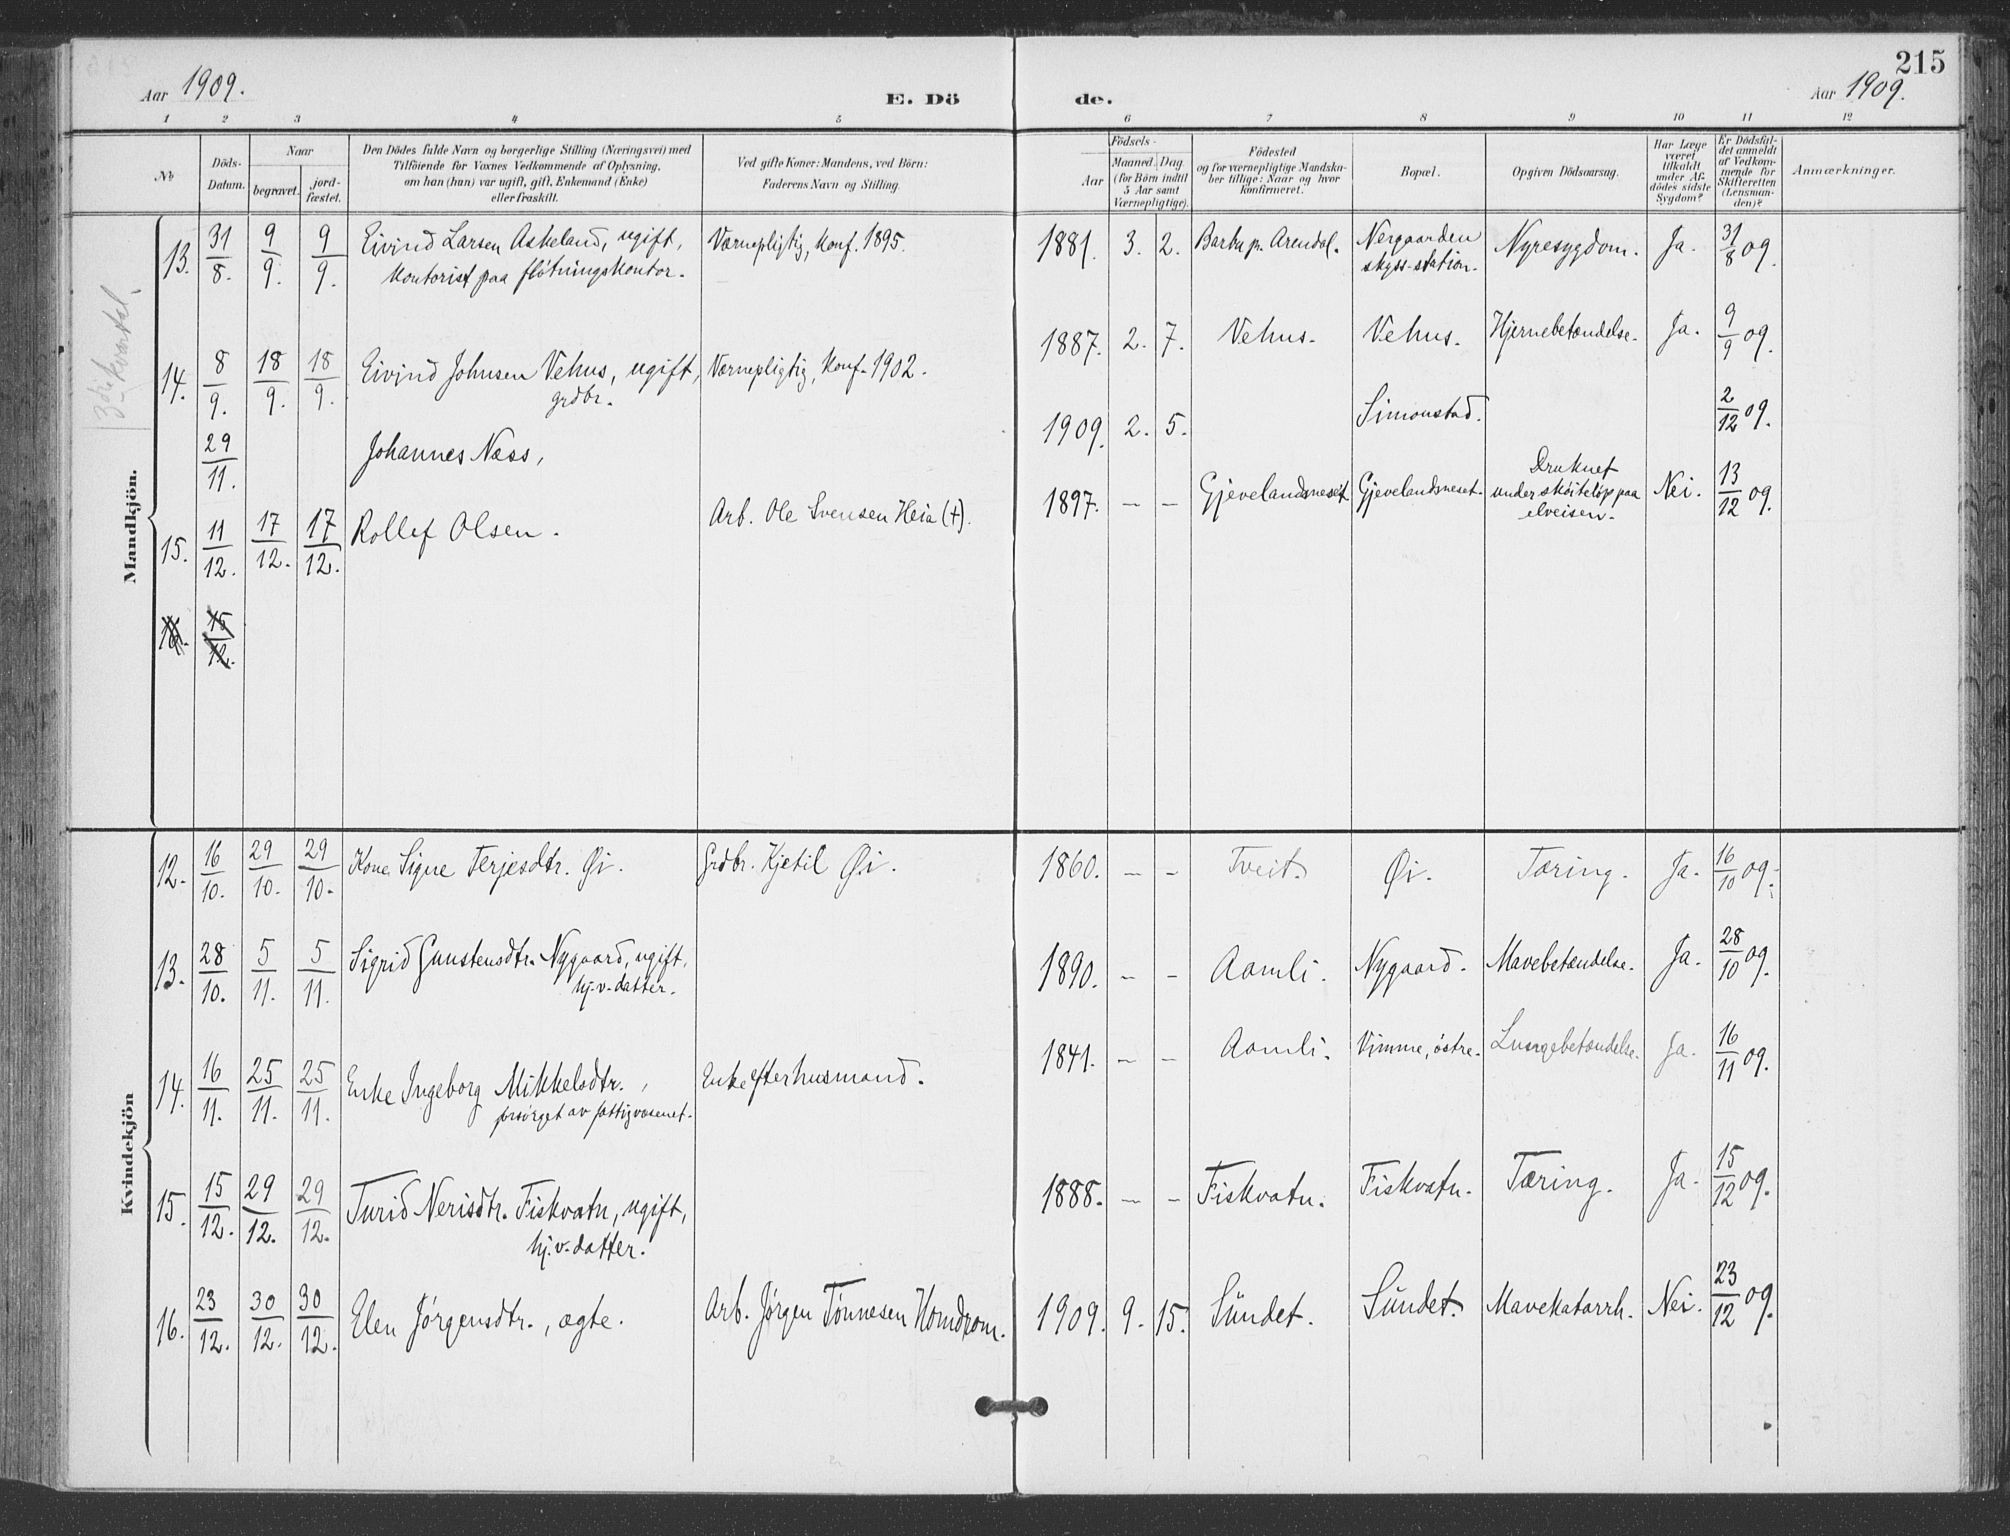 215
Aar 1909.
E. Dö
de.
Aar 1909.
1 2 3 4 5 6 7 8 9 10 11 12
No
Döds-Datum.
Naar
begravet.
jord-fæstet.
Den Dödes fulde Navn og borgerlige Stilling (Næringsvei) med
Tilföiende for Voxnes Vedkommende af Oplysning,
om han (hun) var ugift, gift, Enkemand (Enke)
eller fraskilt.
Ved gifte Koner: Mandens, ved Börn:
Faderens Navn og Stilling.
Födsels-
Aar
Maaned. Dag
(for Börn indtil
5 Aar samt
Værnepligtige).
Födested
og for værnepligtige Mandska-
ber tillige: Naar og hvor
konfirmeret.
Bopæl.
Opgiven Dödsaarsag.
Har Læge
været
tilkaldt
under Af-
dödes sidste
Sygdom?
Er Dödsfal-
det anmeldt
af Vedkom-
mende for
Skifteretten
(Lensman-
den)?
Anmærkninger.
3die kvartal.
Mandkjön.
13. 31/8. 9/9. 9/9. Eivind Larsen Askeland, ugift, Værnepligtig, konf. 1895. 1881. 3. 2. Barbu p. Arendal. Nergaarden Nyresygdom. Ja. 31/8 09.
kontorist paa fløtningskontor. skyss-station.
14. 8/9. 18/9. 18/9. Eivind Johnsen Vehus, ugift, Værnepligtig, konf. 1902. 1887. 2. 7. Vehus. Vehus. Hjernebetændelse. Ja. 9/9 09.
grdbr.
29/11. Johannes Næss, 1909. 2. 5. Simonstad. 2/12 09.
15. 11/12. 17/12. 17/12. Rollef Olsen. Arb. Ole Svensen Heia (+). 1897. – – Gjevelandsneset Gjevelandsneset. Druknet
under skøiteløp paa
elveisen. Nei. 13/12 09.
16. 15/12.
Kvindekjön
12. 16/10. 29/10. 29/10. Kone Signe Terjesdtr. Øi. Grdbr. Kjetil Øi. 1860. – – Tveit. Øi. Tæring. Ja. 16/10 09.
13. 28/10. 5/11. 5/11. Sigrid Gunstensdtr. Nygaard, ugift, 1890. – – Aamli. Nygaard. Mavebetændelse. Ja. 28/10 09.
hj.v. datter.
14. 16/11. 25/11. 25/11. Enke Ingeborg Mikkelsdtr., Enke efter husmand. 1841. – – Aamli. Vimme, østre. Lungebetændelse. Ja. 16/11 09.
forsørget av fattigvæsenet.
15. 15/12. 29/12. 29/12. Turid Nerisdtr. Fiskvatn, ugift, 1888. – – Fiskvatn. Fiskvatn. Tæring. Ja. 15/12 09.
hj.v. datter.
16. 23/12. 30/12. 30/12. Elen Jørgensdtr., ægte. Arb. Jørgen Tønnesen Homdrom. 1909. 9. 15. Sundet. Sundet. Mavekatarrh. Nei. 23/12 09.